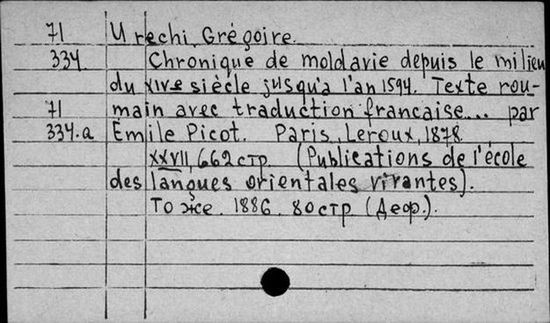 71 Urechi, Grégoire.
334 Chronique de moldavie depuis le milieu
du XIVe siècle jusqu'a l'an 1594. Texte rou-
71 main avec traduction francaise... par
334.a Émile Picot. Paris, Leroux, 1878.
XXVII, 662 стр. (Publications de l'école
des langues orientales vivantes).
То же. 1886. 80 стр (Деф.).